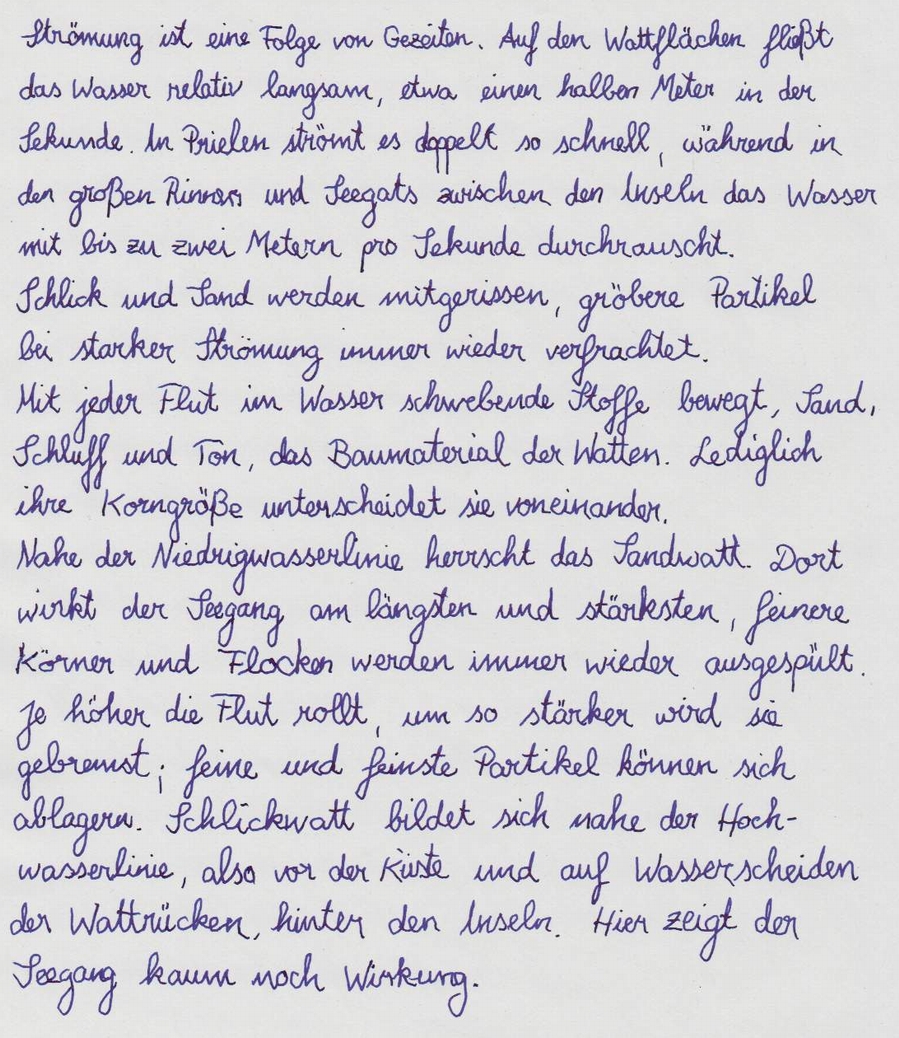 Strömung ist eine Folge von Gezeiten. Auf den Wattflächen fließt
das Wasser relativ langsam, etwa einen halben Meter in der
Sekunde. In Prielen strömt es doppelt so schnell, während in
den großen Rinnen und Seegats zwischen den Inseln das Wasser
mit bis zu zwei Metern pro Sekunde durchrauscht.
Schlick und Sand werden mitgerissen, gröbere Partikel
bei starker Strömung immer wieder verfrachtet.
Mit jeder Flut im Wasser schwebende Stoffe bewegt, Sand,
Schluff und Ton, das Baumaterial der Watten. Lediglich
ihre Korngröße unterscheidet sie voneinander.
Nahe der Niedrigwasserlinie herrscht das Sandwatt. Dort
wirkt der Seegang am längsten und stärksten, feinere
Körner und Flocken werden immer wieder ausgespült.
Je höher die Flut rollt, um so stärker wird sie
gebremst; feine und feinste Partikel können sich
ablagern. Schlickwatt bildet sich nahe der Hoch-
wasserlinie, also vor der Küste und auf Wasserscheiden
der Wattrücken, hinter den Inseln. Hier zeigt der
Seegang kaum noch Wirkung.